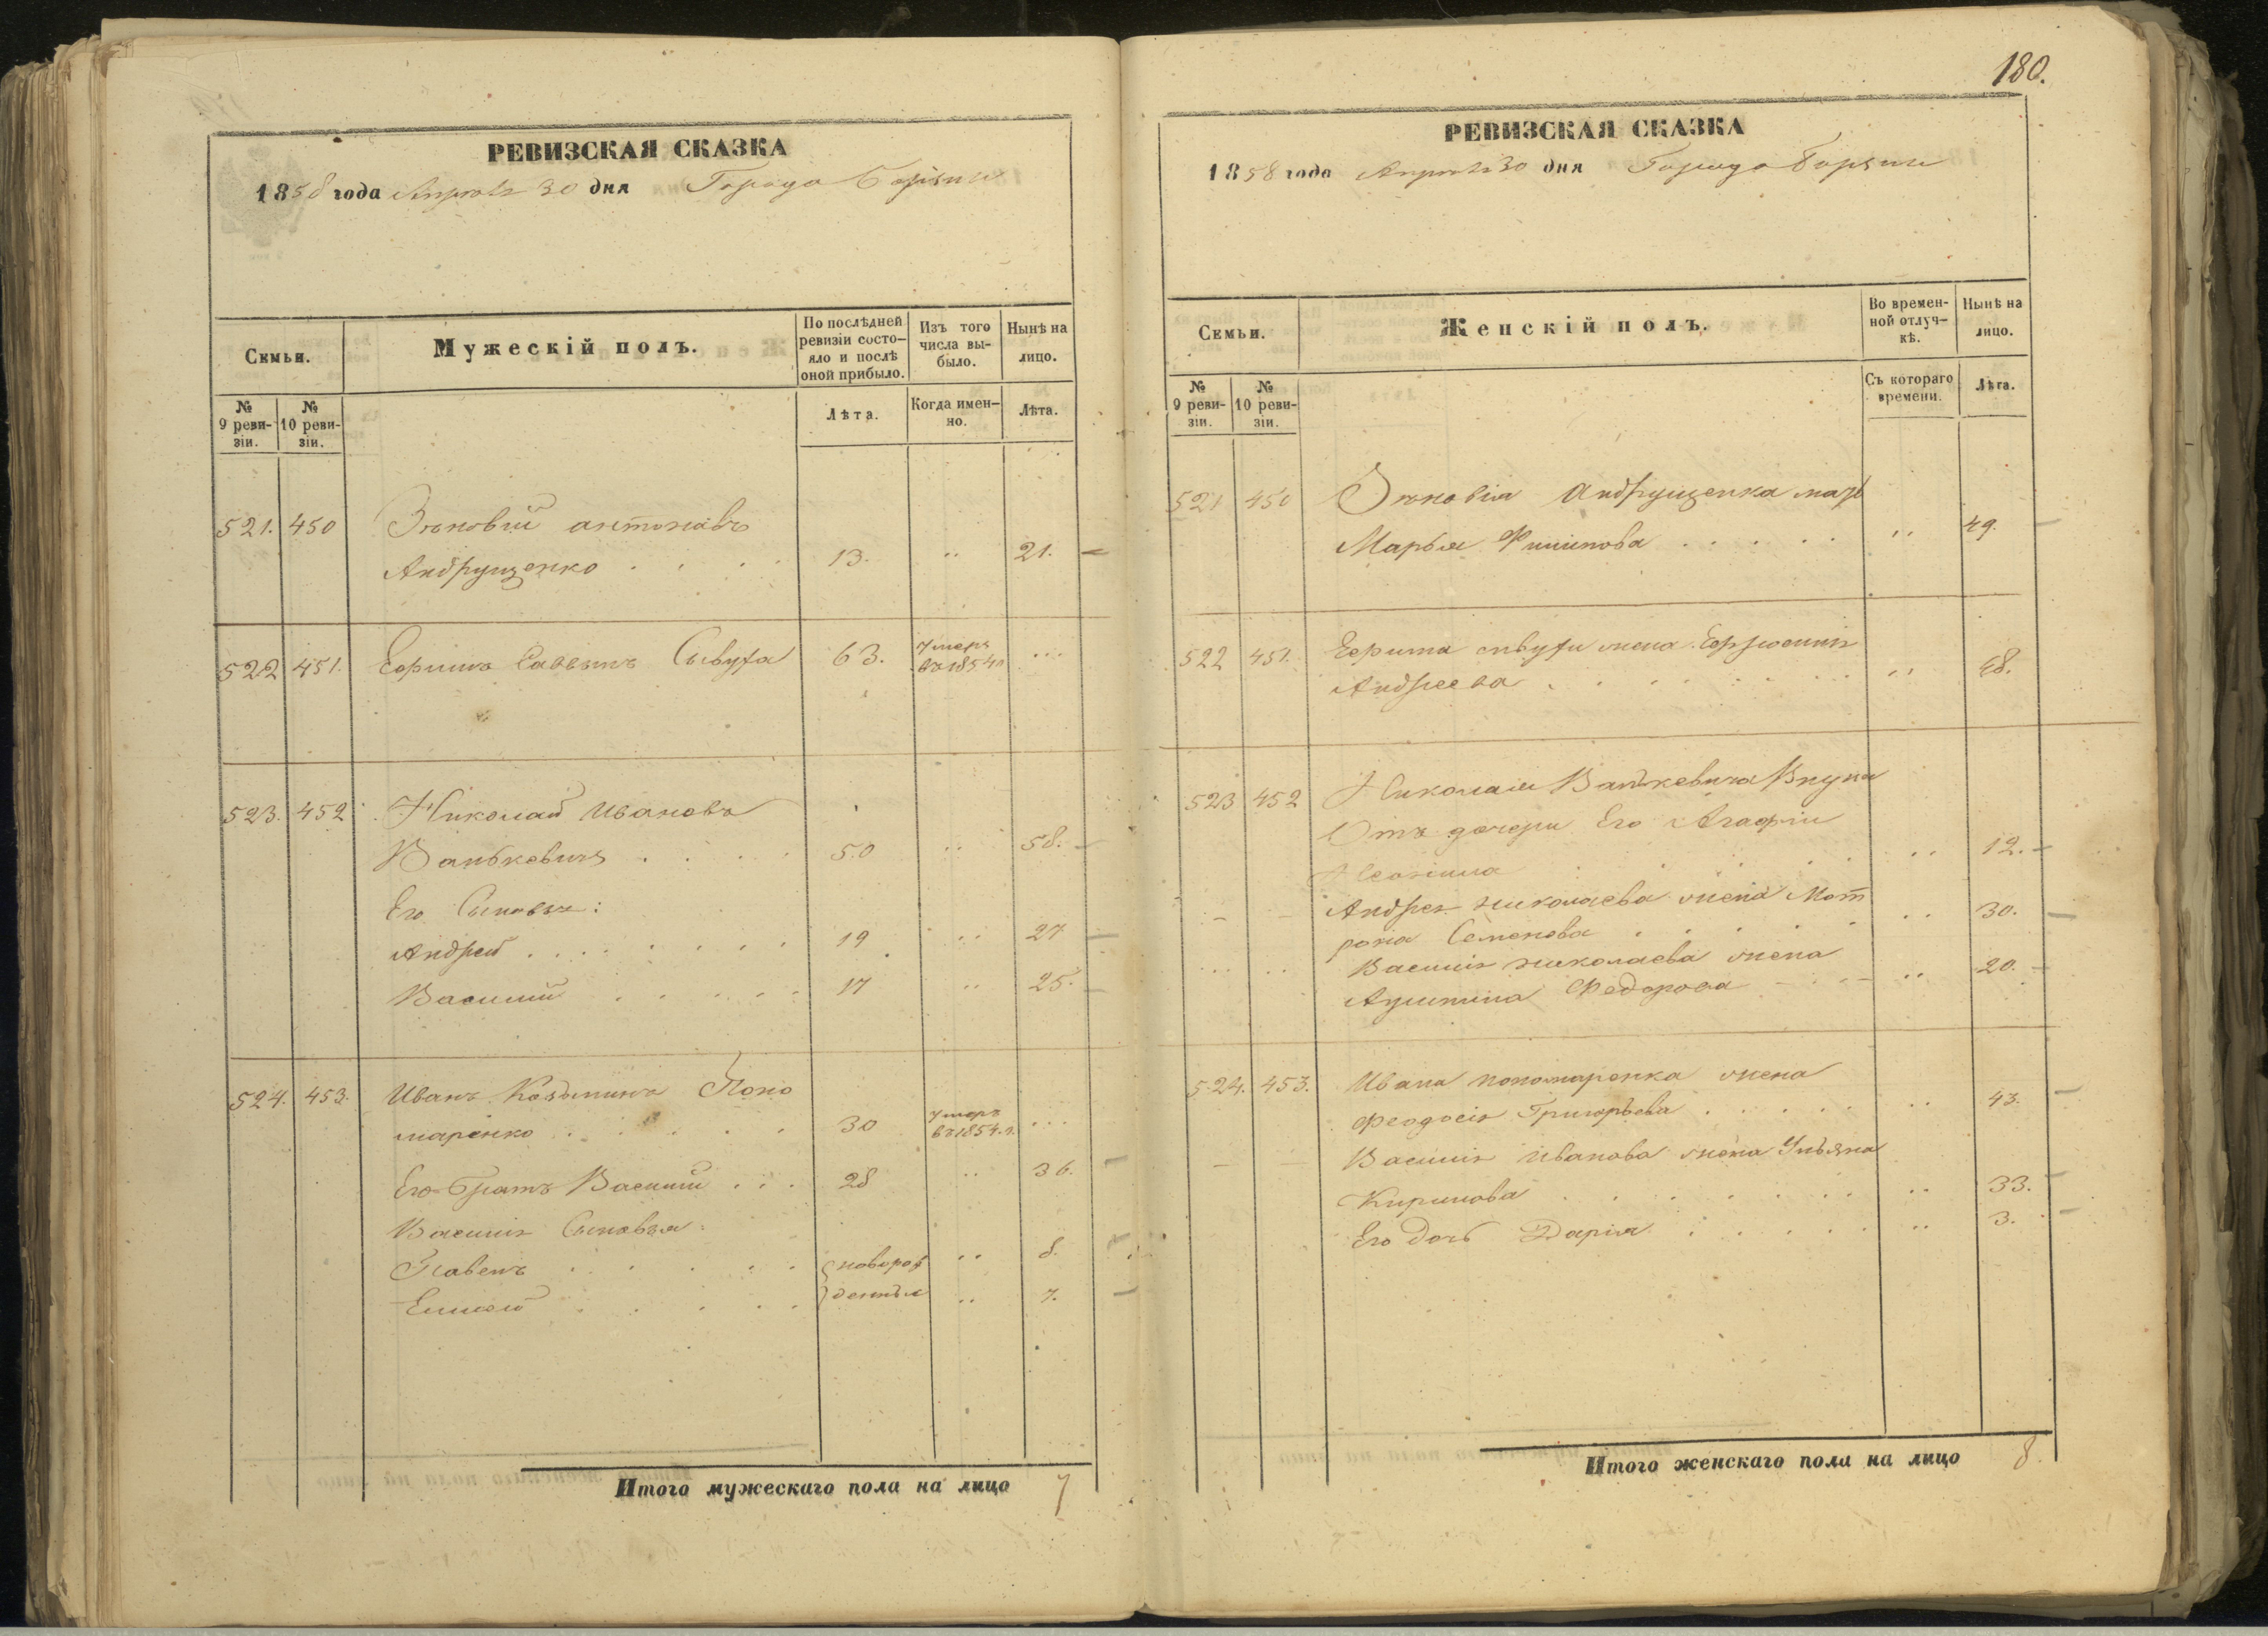 РЕВИЗСКАЯ СКАЗКА
1858 года Апреля 30 дня Города Борзны
Семьи.
Мужескій полъ.
По послѣдней ревизіи состо-
яло и послѣ
оной прибыло.
Изъ того
числа вы-
было.
Нынѣ на
лицо.
№
9 реви-
зіи.
№
10 реви-
зіи.
Лѣта.
Когда имен-
но.
Лѣта.
521. 450 Зѣновій антоновъ
Андрущенко . . . . 13. ,, 21.
522 451. Ефимъ Саввинъ Сывура 63. умеръ
въ 1854г ...
523. 452 Николай Ивановъ
Ванькевичъ . . . . 50 ,, 58.
Его Сыновья:
Андрей . . . . . . . . 19 ,, 27
Василий . . . . . 17 ,, 25.
524. 453. Иванъ Козьминъ Поно
маренко . . . . . 30 умеръ
въ 1854.г. ...
Его Братъ Василий . . . 28 ,, 36.
Василія Сыновья:
Павелъ . . . . . новорож ,, 8.
Елисей . . . . . денныя ,, 7.
Итого мужескаго пола на лицо 7
180.
РЕВИЗСКАЯ СКАЗКА
1858 года Апреля 30 дня Города Борзны
Семьи.
Женскій полъ.
Во времен-
ной отлуч-
кѣ.
Нынѣ на
лицо.
№
9 реви-
зіи.
№
10 реви-
зіи.
Съ котораго
времени.
Лѣта.
521 450 Зѣновія Андрущенка мать
Марья Филипова . . . . . ,, 49.
522 451. Ефима сывуры жена Ефросинія
Андреева . . . . . . . ,, 48.
523 452 Николая Ванькевича Внука
Отъ дочери Его Агафіи
. . . . . ,, 12.
Андрея николаева жена Мот
рона Семенова . . . . . ,, 30.
Василія николаева жена
Федорова ,, 20.
524. 453. Ивана пономаренка жена
Феодосія Григорьева . . . . . ,, 43.
Василія иванова жена Ульяна
Кирилова . . . . . . . ,, 33.
Его дочь Дарія . . . . . ,, 3.
Итого женскаго пола на лицо 8